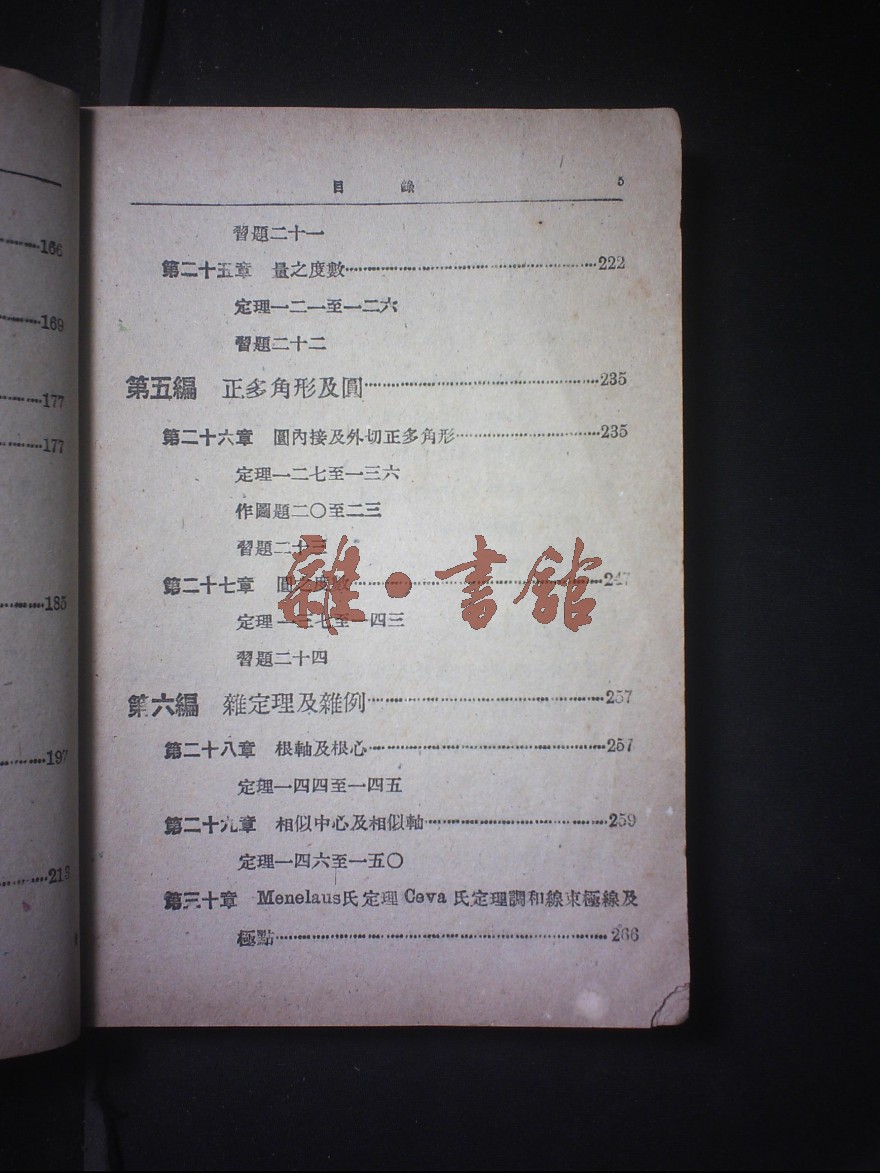 166
169
177
177
185
197
目錄 5
習題二十一
第二十五章 量之度數 222
定理一二一至一二六
習題二十二
第五編 正多角形及圓 235
第二十六章 圓內接及外切正多角形 235
定理一二七至一三六
作圖題二〇至二三
習題二十三
第二十七章 圓之度數 247
定理一三七至一四三
習題二十四
第六編 雜定理及雜例 257
第二十八章 根軸及根心 257
定理一四四至一四五
第二十九章 相似中心及相似軸 259
定理一四六至一五〇
第三十章 Menelaus氏定理Ceva氏定理調和線束極線及
極點 266
雜·書館